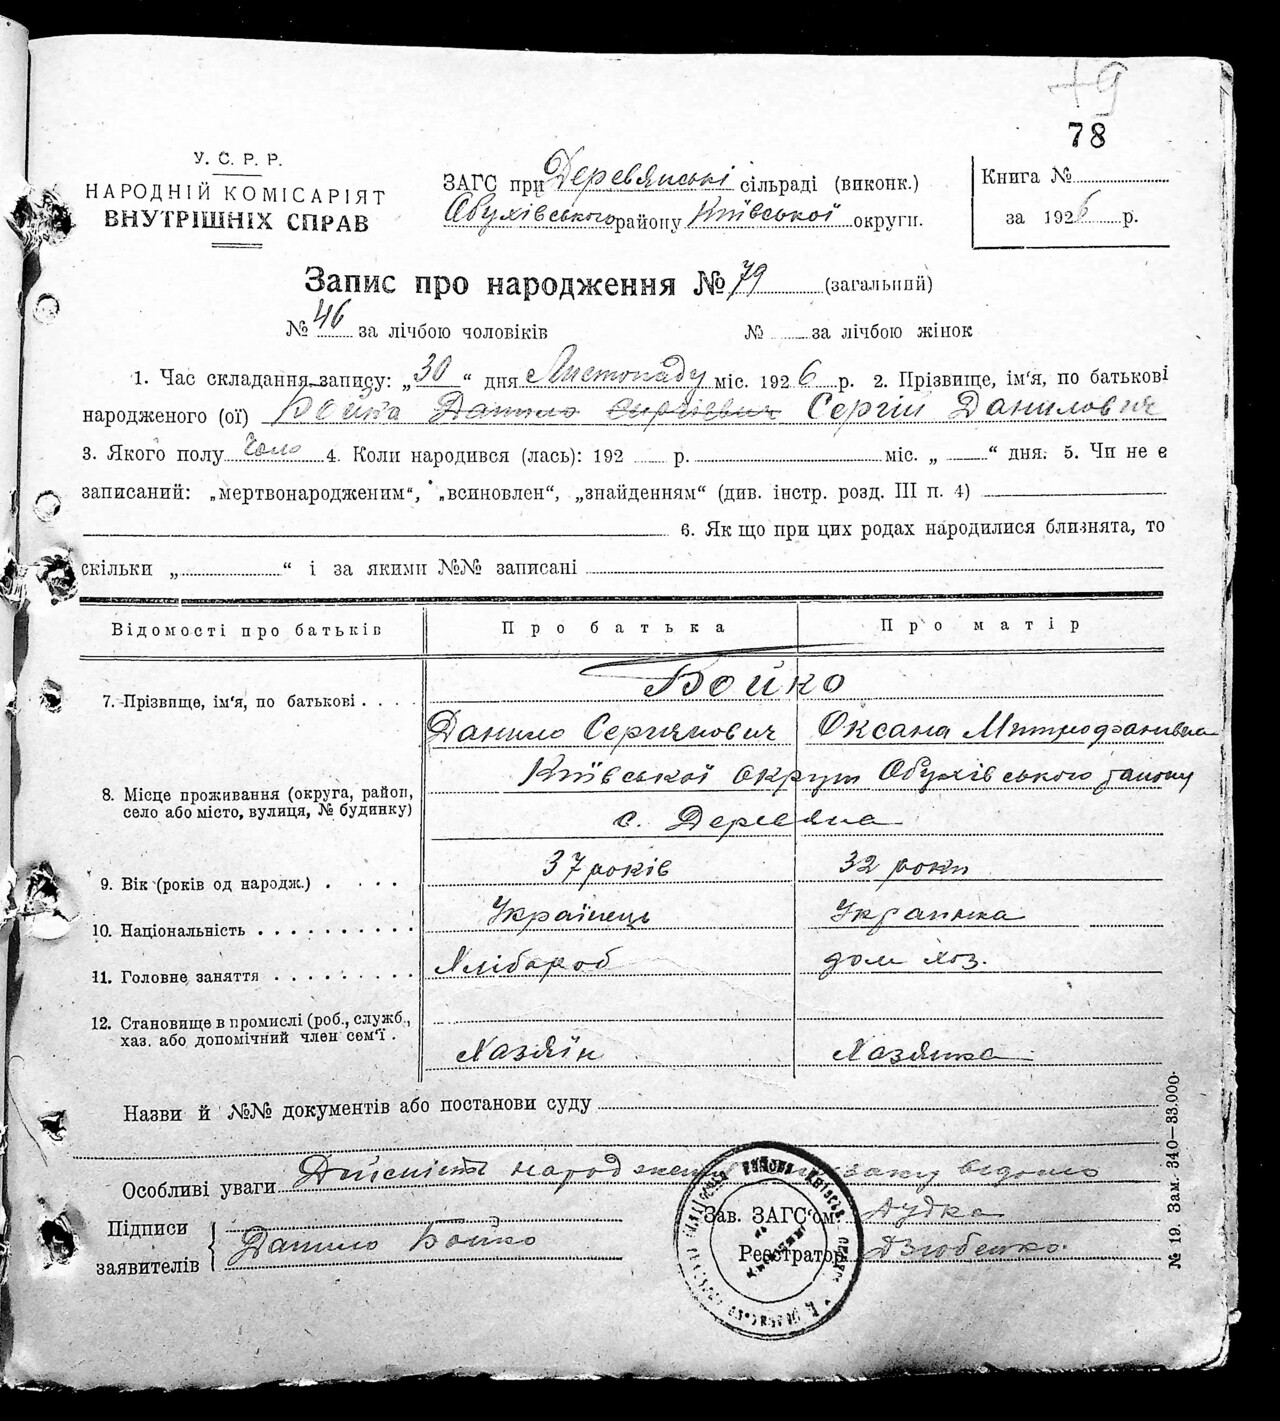 79
78
У. С. Р. Р.
НАРОДНІЙ КОМІСАРІЯТ
ВНУТРІШНІХ СПРАВ
ЗАГС при Деревянскі сільраді (виконк.)
Обухівського району Київської округи.
Книга №
за 1926 р.
Запис про народження № 79 (загальний)
№ 46 за лічбою чоловіків № за лічбою жінок
1. Час складання запису: „30“ дня Листопаду міс. 1926 р. 2. Прізвище, ім'я, по батькові
народженого (ої) Бойка Данило Сергієвич Сергій Данилович
3. Якого полу Чоло 4. Коли народився (лась): 192 р. міс. „ “ дня. 5. Чи не є
записаний: „мертвонародженим“, „всиновлен“, „знайденням“ (див. інстр. розд. III п. 4)
6. Як що при цих родах народилися близнята, то
скільки „ “ і за якими №№ записані
Відомості про батьків Про батька Про матір
7. Прізвище, ім'я, по батькові . . . . Бойко
Данило Сергиянович Оксана Митрофанивна
8. Місце проживання (округа, район, село або місто, вулиця, № будинку) Київської округи Обухівського району
с. Деревяна
9. Вік (років од народж.) . . . . 37 років 32 роки
10. Національність . . . . . . . . . . Українець Українка
11. Головне заняття . . . . . . . . . Хлібороб дом хоз.
12. Становище в промислі (роб., служб.,
хаз. або допомічний член сем'ї . Хазяїн Хазяика
Назви й №№ документів або постанови суду
Особливі уваги Дийсність народження відомо
Підписи
заявителів Данило Бойко
Зав. ЗАГС'ом Дудка
Реєстратор Дзюбенко.
№ 19. Зам. 340—33.000.